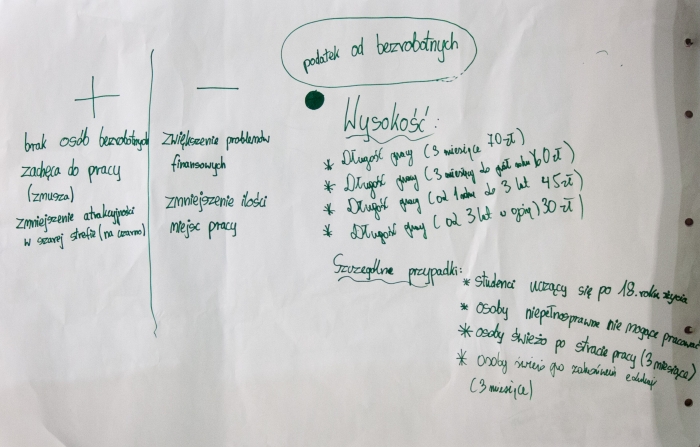 podatek od bezrobotnych
+
—
brak osób bezrobotnych
zachęca do pracy
(zmusza)
zmniejszenie atrakcyjności
w szarej strefie (na czarno)
Zwiększenie problemów
finansowych
zmniejszenie ilości
miejsc pracy
Wysokość:
* Długość pracy (3 miesiące 70 zł)
* Długość pracy (3 miesiący do pół roku 60 zł)
* Długość pracy (od 1 roku do 3 lat 45 zł)
* Długość pracy (od 3 lat w) 30 zł
Szczególne przypadki:
* studenci uczący się po 18. roku życia
* osoby niepełnosprawne nie mogące pracować
* osoby świeżo po stracie pracy (3 miesiące)
* osoby świeżo po zakończeniu edukacji
(3 miesiące)